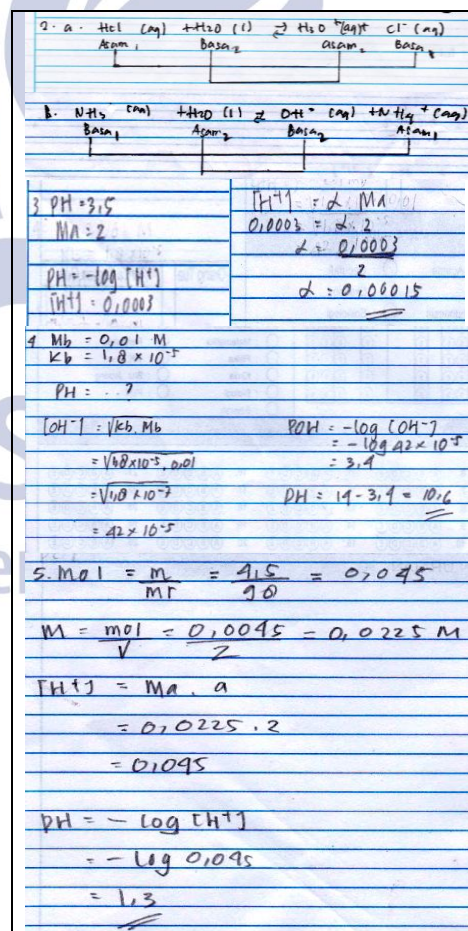 2. a. HCl (aq) + H2O (l) ⇄ H3O+ (aq) + Cl- (aq)
Asam1 Basa2 asam2 Basa1
b. NH3 (aq) + H2O (l) ⇄ OH- (aq) + NH4+ (aq)
Basa1 Asam2 Basa2 Asam1
3 PH = 3,5
Ma = 2
PH = -log [H+]
[H+] = 0,0003
[H+] = α Ma
0,0003 = α . 2
α = 0,0003
2
α = 0,00015
4 Mb = 0,01 M
Kb = 1,8 × 10-5
PH = ..?
[OH-] = √Kb. Mb
= √1,8×10-5. 0,01
= √1,8 × 10-7
= 42 × 10-5
POH = -log [OH-]
= -log 42 × 10-5
= 3,4
PH = 14 - 3,4 = 10,6
5. Mol = m/mr = 4,5/90 = 0,045
M = mol/V = 0,0045/2 = 0,0225 M
[H+] = Ma . a
= 0,0225 . 2
= 0,045
PH = - log [H+]
= - log 0,045
= 1,3